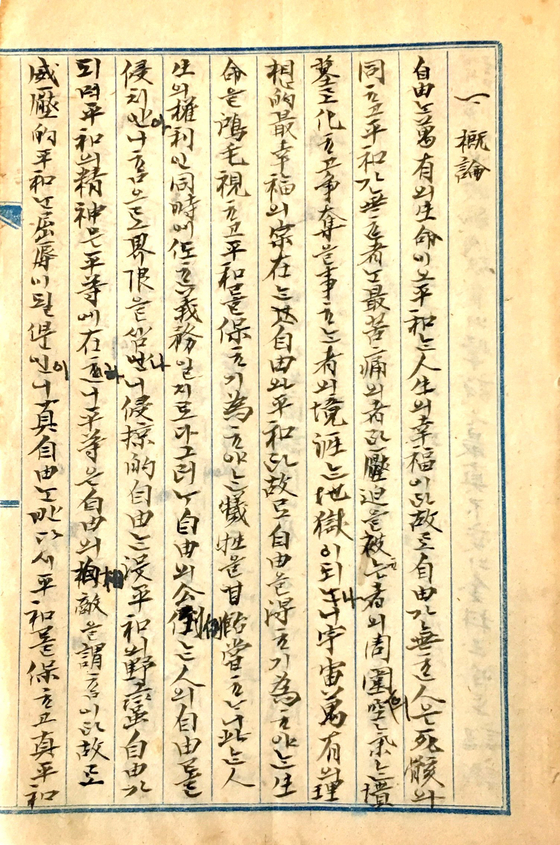 一、概論
自由는萬有의生命이오平和는人生의幸福이라故로自由가無ᄒᆞᆫ人은死骸와
同ᄒᆞ고平和가無ᄒᆞᆫ者는最苦痛의者라壓迫을被ᄒᆞ는者의周圍의空氣는墳
墓로化ᄒᆞ고爭奪을事ᄒᆞ는者의境涯는地獄이되나니宇宙萬有의理
想的最幸福의實在는自由와平和라故로自由를得ᄒᆞ기爲ᄒᆞ야는生
命을鴻毛視ᄒᆞ고平和를保ᄒᆞ기爲ᄒᆞ야는犧牲을甘飴嘗ᄒᆞ나니此는人
生의權利인同時에ᄯᅩᄒᆞᆫ義務일지로다그러나自由의公例는人의自由를
侵치안이ᄒᆞᆷ으로界限을삼나니侵掠的自由는沒平和의野蠻自由가
되며平和의精神은平等에在ᄒᆞ나니平等은自由의相敵을謂ᄒᆞᆷ이라故로
威壓的平和는屈辱이될ᄲᅮᆫ이니眞自由는반다시平和를保ᄒᆞ고眞平和